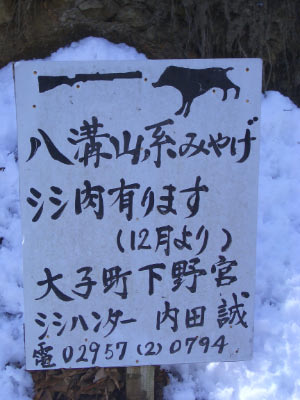 八溝山系みやげ
シシ肉有ります
(12月より)
大子町下野宮
シシハンター 内田誠
電02957(2)0794